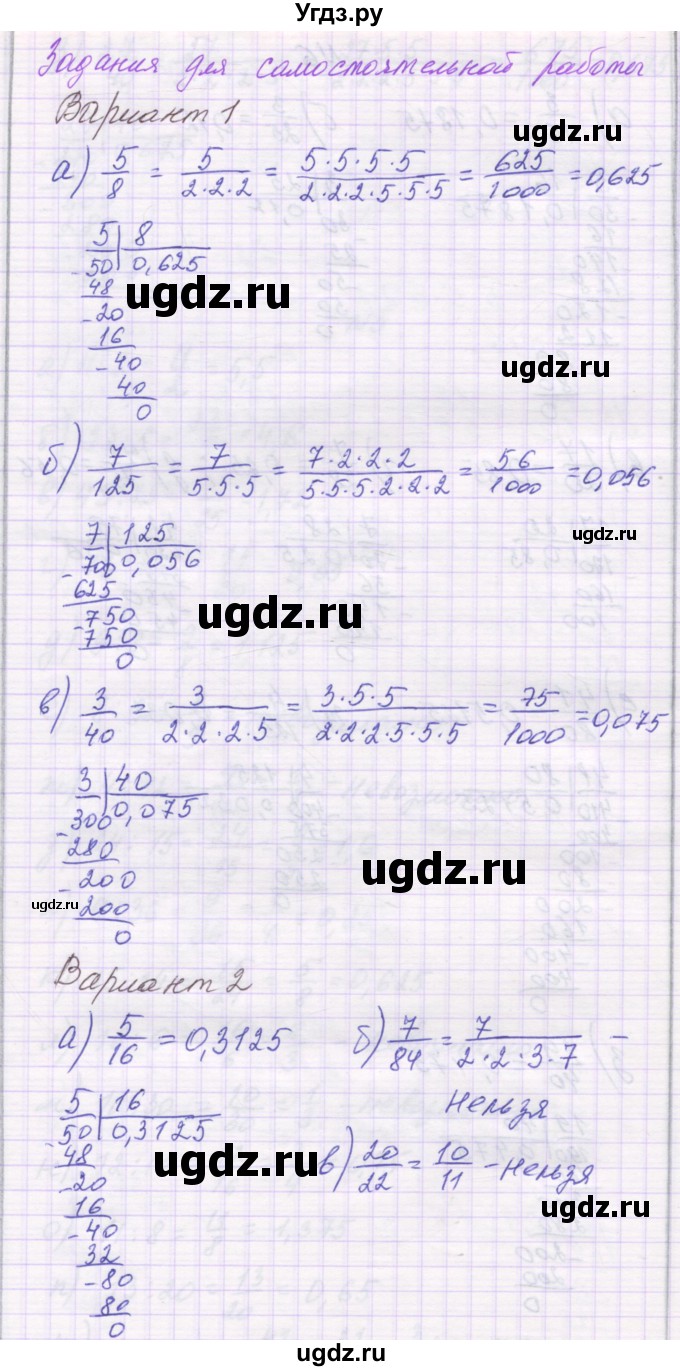 Угдз.ру
Задания для самостоятельной работы
Вариант 1
ugdz.ru
а) 5/8 = 5/(2·2·2) = (5·5·5·5)/(2·2·2·5·5·5) = 625/1000 = 0,625
5 | 8
-50 | 0,625
48
-20
16
-40
40
0
ugdz.ru
ugdz.ru
б) 7/125 = 7/(5·5·5) = (7·2·2·2)/(5·5·5·2·2·2) = 56/1000 = 0,056.
7 | 125
-700 | 0,056
625
-750
750
0
ugdz.ru
ugdz.ru
в) 3/40 = 3/(2·2·2·5) = (3·5·5)/(2·2·2·5·5·5) = 75/1000 = 0,075
3 | 40
-300 | 0,075
280
-200
200
0
ugdz.ru
ugdz.ru
Вариант 2
а) 5/16 = 0,3125
5 | 16
-50 | 0,3125
48
-20
16
-40
32
-80
80
0
ugdz.ru
б) 7/84 = 7/(2·2·3·7) –
Нельзя
в) 20/22 = 10/11 - Нельзя
ugdz.ru
ugdz.ru